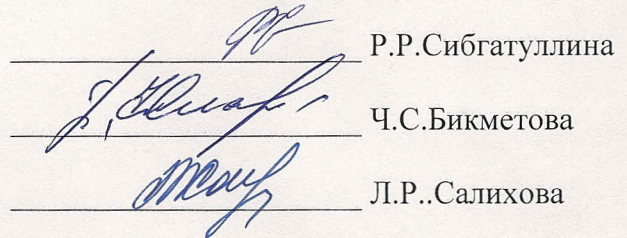 Р.Р.Сибгатуллина
Ч.С.Бикметова
Л.Р..Салихова